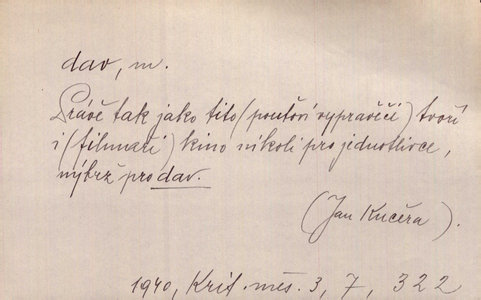 dav, m.
Právě tak jako tito (pouťoví vypravěči) tvoří
i (filmaři) kino nikoli pro jednotlivce,
nýbrž pro dav.
(Jan Kučera).
1940, Krit. měs. 3, 7, 322